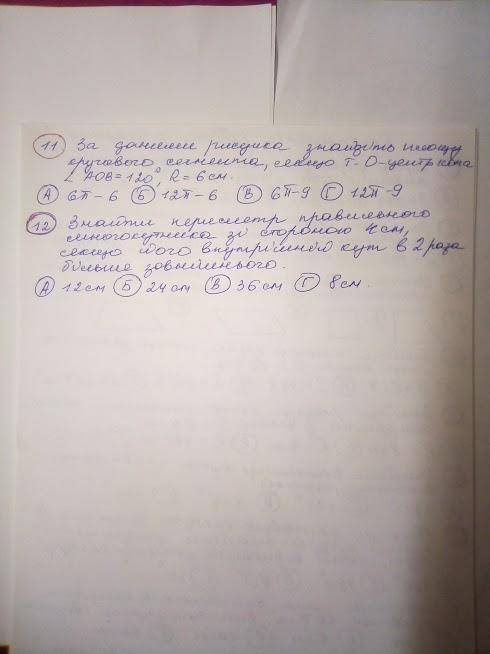 11 За даними рисунка знайдіть площу
кругового сегмента, якщо т. О-центр кола
∠ AOB = 120°, R = 6 см.
А 6π - 6 Б 12π - 6 В 6π - 9 Г 12π - 9
12 Знайти периметр правильного
многокутника зі стороною 4 см,
якщо його внутрішній кут в 2 раза
більше зовнішнього.
А 12 см Б 24 см В 36 см Г 8 см.